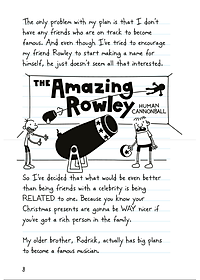 The only problem with my plan is that I don't
have any friends who are on track to become
famous. And even though I've tried to encourage
my friend Rowley to start making a name for
himself, he just doesn't seem all that interested.
THE Amazing
Rowley
HUMAN
CANNONBALL
So I've decided that what would be even better
than being friends with a celebrity is being
RELATED to one. Because you know your
Christmas presents are gonna be WAY nicer if
you've got a rich person in the family.
My older brother, Rodrick, actually has big plans
to become a famous musician.
8